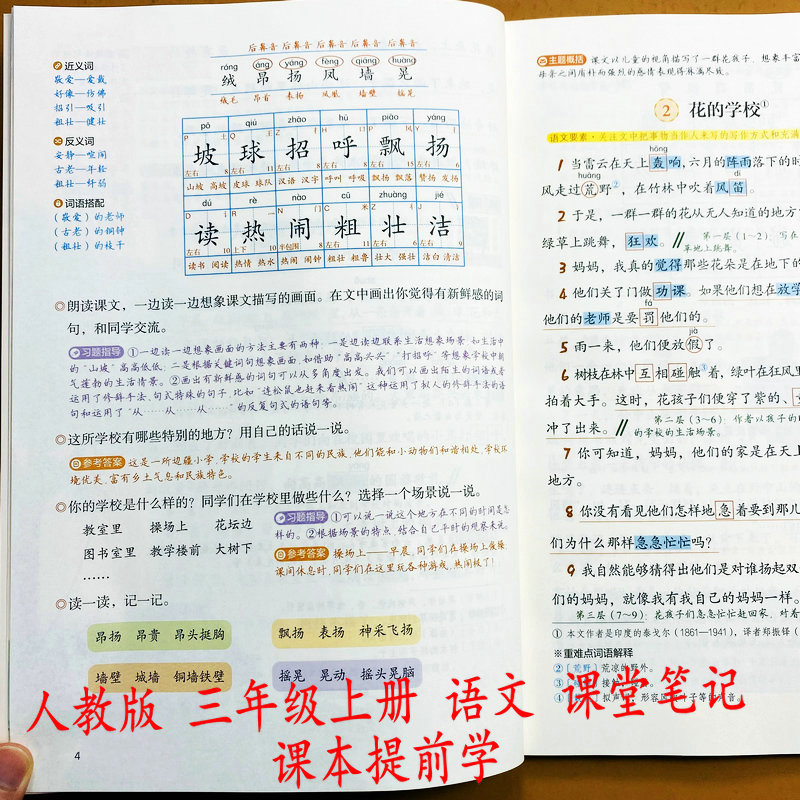 近义词
敬爱—爱戴
好像—仿佛
招引—吸引
粗壮—健壮
反义词
安静—喧闹
古老—年轻
粗壮—纤弱
词语搭配
(敬爱)的老师
(古老)的铜钟
(粗壮)的枝干
后鼻音 后鼻音 后鼻音 后鼻音 后鼻音
róng áng yáng fèng qiáng huàng
绒 昂 扬 凤 墙 晃
绒毛 昂首 表扬 凤凰 墙壁 摇晃
pō qiú zhāo hū piāo yáng
坡 球 招 呼 飘 扬
左右 8 左右 11 左右 8 左右 8 左右 15 左右 6
山坡 高坡 皮球 球队 汉语 汉字 呼叫 呼吸 飘扬 飘落 赞扬 发扬
dú rè nào cū zhuàng jié
读 热 闹 粗 壮 洁
左右 10 上下 10 半包围 8 左右 11 左右 6 左右 9
读书 阅读 热情 热水 热闹 闹钟 粗壮 粗鲁 壮大 强壮 洁白 清洁
朗读课文，一边读一边想象课文描写的画面。在文中画出你觉得有新鲜感的词
句，和同学交流。
习题指导 ①一边读一边想象画面的方法主要有两种：一是边读边联系生活想象场景，如生活中
的“山坡”高高低低；二是根据关键词句想象画面，如借助“高高兴兴”“打招呼”等想象学校中朝
气蓬勃的生活情景。②画出有新鲜感的词句可以从多角度出发。我们可以画出陌生的词语或者
运用了修辞手法、句式特殊的句子，比如“连松鼠也赶来看热闹”这种运用了拟人的修辞手法的语
句和运用了“从……从……从……”的反复句式的语句等。
这所学校有哪些特别的地方？用自己的话说一说。
参考答案 这是一所边疆小学，学校的学生来自不同的民族，他们能和小动物们和谐相处，学校环
境优美，富有乡土气息和民族特色。
你的学校是什么样的？同学们在学校里做些什么？选择一个场景说一说。
教室里 操场上 花坛边
图书室里 教学楼前 大树下
……
习题指导 ①可以说一说这个地方在不同的时间是怎
样的。②根据场景的特点，结合自己平时的观察来说。
参考答案 操场上——早晨，同学们在操场上做操，
课间休息时，同学们在这里玩各种游戏，热闹极了！
读一读，记一记。
昂扬 昂贵 昂头挺胸
飘扬 表扬 神采飞扬
墙壁 城墙 铜墙铁壁
摇晃 晃动 摇头晃脑
4
主题概括 课文以儿童的视角描写了一群花孩子，想象丰富
母亲之间质朴而强烈的感情表现得淋漓尽致。
2 花的学校①
语文要素·关注文中把事物当作人来写的写作方式和充满
hōng
1 当雷云在天上轰响，六月的阵雨落下的时
huāng dí
风走过荒野②，在竹林中吹着风笛。
2 于是，一群一群的花从无人知道的地方
绿草上跳舞，狂欢。//第一层（1~2）：写在
草地上跳舞。
3 妈妈，我真的觉得那些花朵是在地下的
4 他们关了门做功课。如果他们想在放学
fá
他们的老师是要罚他们的。
jià
5 雨一来，他们便放假了。
6 树枝在林中互相碰触③着，绿叶在狂风里
拍着大手。这时，花孩子们便穿了紫的、
冲了出来。//第二层（3~6）：作者以孩子的
的学校的生活场景。
7 你可知道，妈妈，他们的家是在天上
地方。
8 你没有看见他们怎样地急着要到那儿
们为什么那样急急忙忙吗？
9 我自然能够猜得出他们是对谁扬起双
们的妈妈，就像我有我自己的妈妈一样。
第三层（7~9）：花孩子们急急忙忙赶回家，对着
① 本文作者是印度的泰戈尔（1861—1941），译者郑振铎
※重难点词语解释
②〔荒野〕荒凉的野外。
人教版 三年级上册 语文 课堂笔记
课本提前学